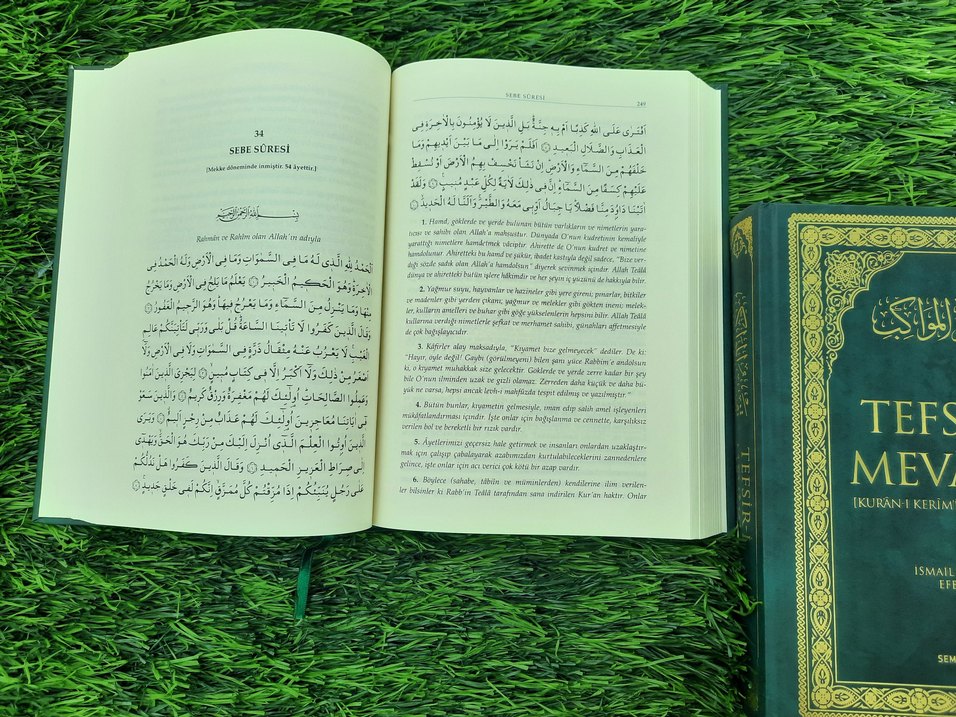 34
SEBE SÛRESİ
[Mekke döneminde inmiştir. 54 âyettir.]
بِسْمِ اللّٰهِ الرَّحْمٰنِ الرَّحِيمِ
Rahmân ve Rahîm olan Allah'ın adıyla
اَلْحَمْدُ لِلّٰهِ الَّذ۪ي لَهُ مَا فِي السَّمٰوَاتِ وَمَا فِي الْاَرْضِ وَلَهُ الْحَمْدُ فِي
الْاٰخِرَةِ وَهُوَ الْحَك۪يمُ الْخَب۪يرُ ۝ يَعْلَمُ مَا يَلِجُ فِي الْاَرْضِ وَمَا يَخْرُجُ
مِنْهَا وَمَا يَنْزِلُ مِنَ السَّمَٓاءِ وَمَا يَعْرُجُ ف۪يهَا وَهُوَ الرَّح۪يمُ الْغَفُورُ ۝
وَقَالَ الَّذ۪ينَ كَفَرُوا لَا تَأْت۪ينَا السَّاعَةُ قُلْ بَلٰى وَرَبّ۪ي لَتَأْتِيَنَّكُمْ عَالِمِ
الْغَيْبِ لَا يَعْزُبُ عَنْهُ مِثْقَالُ ذَرَّةٍ فِي السَّمٰوَاتِ وَلَا فِي الْاَرْضِ وَلَٓا
اَصْغَرُ مِنْ ذٰلِكَ وَلَٓا اَكْبَرُ اِلَّا ف۪ي كِتَابٍ مُب۪ينٍ ۝ لِيَجْزِيَ الَّذ۪ينَ اٰمَنُوا
وَعَمِلُوا الصَّالِحَاتِ اُو۬لٰٓئِكَ لَهُمْ مَغْفِرَةٌ وَرِزْقٌ كَر۪يمٌ ۝ وَالَّذ۪ينَ سَعَوْ
ف۪ٓي اٰيَاتِنَا مُعَاجِز۪ينَ اُو۬لٰٓئِكَ لَهُمْ عَذَابٌ مِنْ رِجْزٍ اَل۪يمٌ ۝ وَيَرَى
الَّذ۪ينَ اُو۫تُوا الْعِلْمَ الَّذ۪ٓي اُنْزِلَ اِلَيْكَ مِنْ رَبِّكَ هُوَ الْحَقَّ وَيَهْد۪ٓي
اِلٰى صِرَاطِ الْعَز۪يزِ الْحَم۪يدِ ۝ وَقَالَ الَّذ۪ينَ كَفَرُوا هَلْ نَدُلُّكُمْ
عَلٰى رَجُلٍ يُنَبِّئُكُمْ اِذَا مُزِّقْتُمْ كُلَّ مُمَزَّقٍ اِنَّكُمْ لَف۪ي خَلْقٍ جَد۪يدٍ ۝
SEBE SÛRESİ
249
اَفْتَرٰى عَلَى اللّٰهِ كَذِبًا اَمْ بِه۪ جِنَّةٌ بَلِ الَّذ۪ينَ لَا يُؤْمِنُونَ بِالْاٰخِرَةِ فِي
الْعَذَابِ وَالضَّلَالِ الْبَع۪يدِ ۝ اَفَلَمْ يَرَوْا اِلٰى مَا بَيْنَ اَيْد۪يهِمْ وَمَا
خَلْفَهُمْ مِنَ السَّمَٓاءِ وَالْاَرْضِ اِنْ نَشَأْ نَخْسِفْ بِهِمُ الْاَرْضَ اَوْ نُسْقِطْ
عَلَيْهِمْ كِسَفًا مِنَ السَّمَٓاءِ اِنَّ ف۪ي ذٰلِكَ لَاٰيَةً لِكُلِّ عَبْدٍ مُن۪يبٍ ۝ وَلَقَدْ
اٰتَيْنَا دَاوُ۫دَ مِنَّا فَضْلًا يَا جِبَالُ اَوِّب۪ي مَعَهُ وَالطَّيْرَ وَاَلَنَّا لَهُ الْحَد۪يدَ ۝
1. Hamd, göklerde ve yerde bulunan bütün varlıkların ve nimetlerin yara-
tıcısı ve sahibi olan Allah'a mahsustur. Dünyada O'nun kudretinin kemaliyle
yarattığı nimetlere hamdetmek vâciptir. Ahirette de O'nun kudret ve nimetine
hamdolunur. Ahiretteki bu hamd ve şükür, ibadet kastıyla değil sadece, "Bize ver-
diği sözde sadık olan Allah'a hamdolsun" diyerek sevinmek içindir. Allah Teâlâ
dünya ve ahiretteki bütün işlere hâkimdir ve her şeyin iç yüzünü de hakkıyla bilir.
2. Yağmur suyu, hayvanlar ve hazineler gibi yere gireni; pınarlar, bitkiler
ve madenler gibi yerden çıkanı, yağmur ve melekler gibi gökten ineni; melek-
ler, kulların amelleri ve buhar gibi göğe yükselenlerin hepsini bilir. Allah Teâlâ
kullarına verdiği nimetlerle şefkat ve merhamet sahibi, günahları affetmesiyle
de çok bağışlayıcıdır.
3. Kâfirler alay maksadıyla, "Kıyamet bize gelmeyecek" dediler. De ki:
"Hayır, öyle değil! Gaybı (görülmeyeni) bilen şanı yüce Rabbim'e andolsun
ki, o kıyamet muhakkak size gelecektir. Göklerde ve yerde zerre kadar bir şey
bile O'nun ilminden uzak ve gizli olamaz. Zerreden daha küçük ve daha bü-
yük ne varsa, hepsi ancak levh-i mahfûzda tespit edilmiş ve yazılmıştır."
4. Bütün bunlar, kıyametin gelmesiyle, iman edip salih amel işleyenleri
mükâfatlandırması içindir. İşte onlar için bağışlanma ve cennette, karşılıksız
verilen bol ve bereketli bir rızık vardır.
5. Âyetlerimizi geçersiz hale getirmek ve insanları onlardan uzaklaştır-
mak için çalışıp çabalayarak azabımızdan kurtulabileceklerini zannedenlere
gelince, işte onlar için acı verici çok kötü bir azap vardır.
6. Böylece (sahabe, tâbiîn ve müminlerden) kendilerine ilim verilen-
ler bilsinler ki Rabb'in Teâlâ tarafından sana indirilen Kur'an haktır. Onlar
المواكب
TEFS
MEVA
[KURÂN-I KERÎM'
ISMAİL
EFE
SEM
TEFSİR-İ